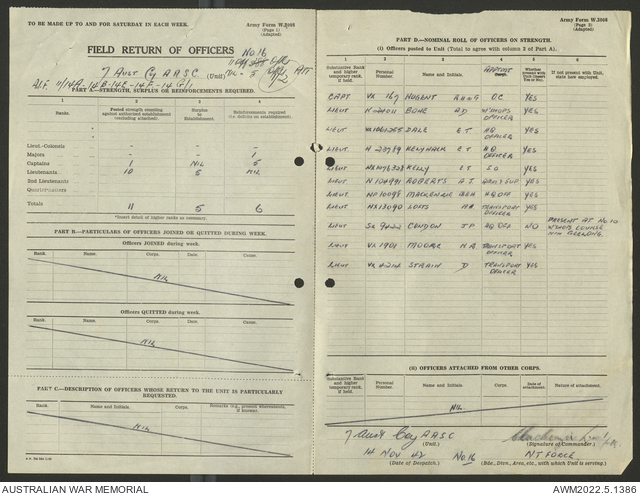 TO BE MADE UP TO AND FOR SATURDAY IN EACH WEEK.
Army Form W.3008
(Page 1)
(Adapted)
FIELD RETURN OF OFFICERS No 16
7 Aust Coy A A S C (Unit)
PART A—STRENGTH, SURPLUS OR REINFORCEMENTS REQUIRED.
1 2 3 4
Ranks. Posted strength counting against authorised establishment (excluding attached). Surplus to Establishment. Reinforcements required (i.e. deficits on establishment).
Lieut.-Colonels - - -
Majors - - 1
Captains 1 NIL 5
Lieutenants 10 5 NIL
2nd Lieutenants
Quartermasters
Totals 11 5 6
*Insert detail of higher ranks as necessary.
PART B.—PARTICULARS OF OFFICERS JOINED OR QUITTED DURING WEEK.
Officers JOINED during week.
Rank. Name. Corps. Date.
NIL
Officers QUITTED during week.
Rank. Name. Corps. Date.
NIL
PART C.—DESCRIPTION OF OFFICERS WHOSE RETURN TO THE UNIT IS PARTICULARLY REQUESTED.
Rank. Name and Initials. Corps.
NIL
Army Form W.3008
(Page 2)
(Adapted)
PART D.—NOMINAL ROLL OF OFFICERS ON STRENGTH.
(i) Officers posted to Unit (Total to agree with column 2 of Part A).
1 2 3 4 5 6
Substantive Rank and higher temporary rank, if held. Personal Number. Name and Initials. APPOINT Whether present with Unit (insert Yes or No). If not present with Unit, state how employed.
CAPT VX 167 NUGENT O.C. YES
LIEUT BONE W'SHOPS OFFICER YES
LIEUT DALE E T HQ OFFICER YES
LIEUT KELYNACK E T HQ OFFICER YES
LIEUT KELLY E T S O YES
LIEUT ROBERTS A J YES
LIEUT NX 10098 MACKENZIE HQ OFF YES
LIEUT NX 13090 LOFTS TRANSPORT OFFICER YES
LIEUT SX 9222 CONDON J P HQ OFF NO PRESENT AT NO 10 W'SHOPS COURSE
LIEUT VX 1901 MOORE TRANSPORT OFFICER YES
LIEUT VX 4214 STRAIN D TRANSPORT OFFICER YES
(ii) OFFICERS ATTACHED FROM OTHER CORPS.
Substantive Rank and higher temporary rank, if held. Personal Number. Name and Initials. Corps. Date of attachment. Nature of attachment.
NIL
7 Aust Coy A A S C
(Unit.)
(Signature of Commander.)
14 Nov 42 No 16 N.T. FORCE
(Date of Despatch.) (Bde., Divn., Area, etc., with which Unit is serving.)
AUSTRALIAN WAR MEMORIAL
AWM2022.5.1386